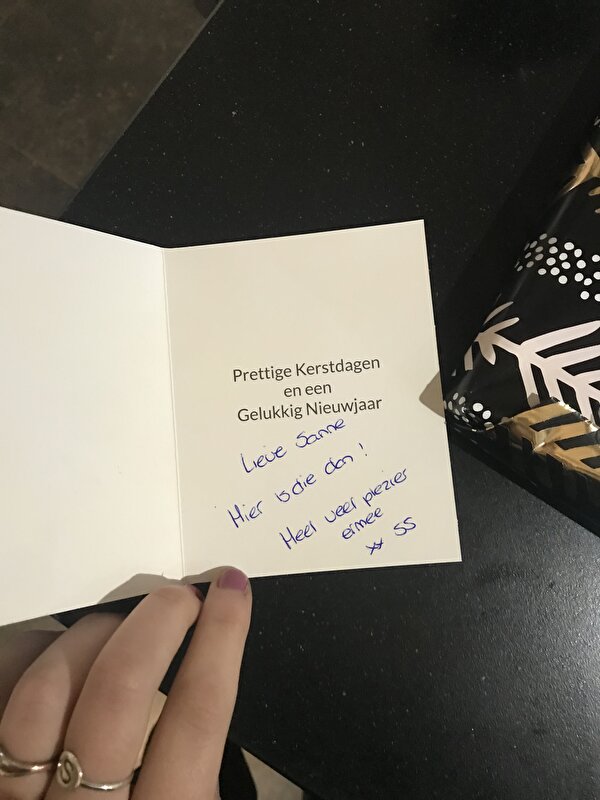 Prettige Kerstdagen
en een
Gelukkig Nieuwjaar
Lieve Sanne
Hier is die dan!
Heel veel plezier
ermee
xx SS
S